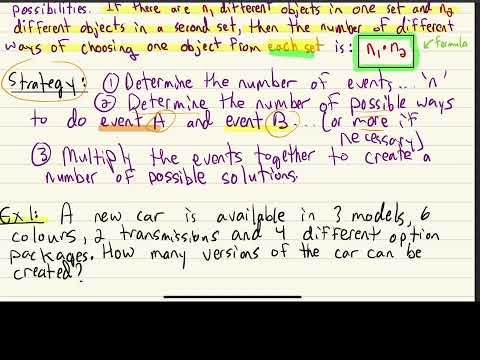 possibilities. If there are n₁ different objects in one set and n₂
different objects in a second set, then the number of different
ways of choosing one object from each set is: n₁•n₂ formula
Strategy: ① Determine the number of events... 'n'
② Determine the number of possible ways
to do event A and event B... (or more if
necessary)
③ Multiply the events together to create a
number of possible solutions.
Ex 1: A new car is available in 3 models, 6
colours, 2 transmissions and 4 different option
packages. How many versions of the car can be
created?